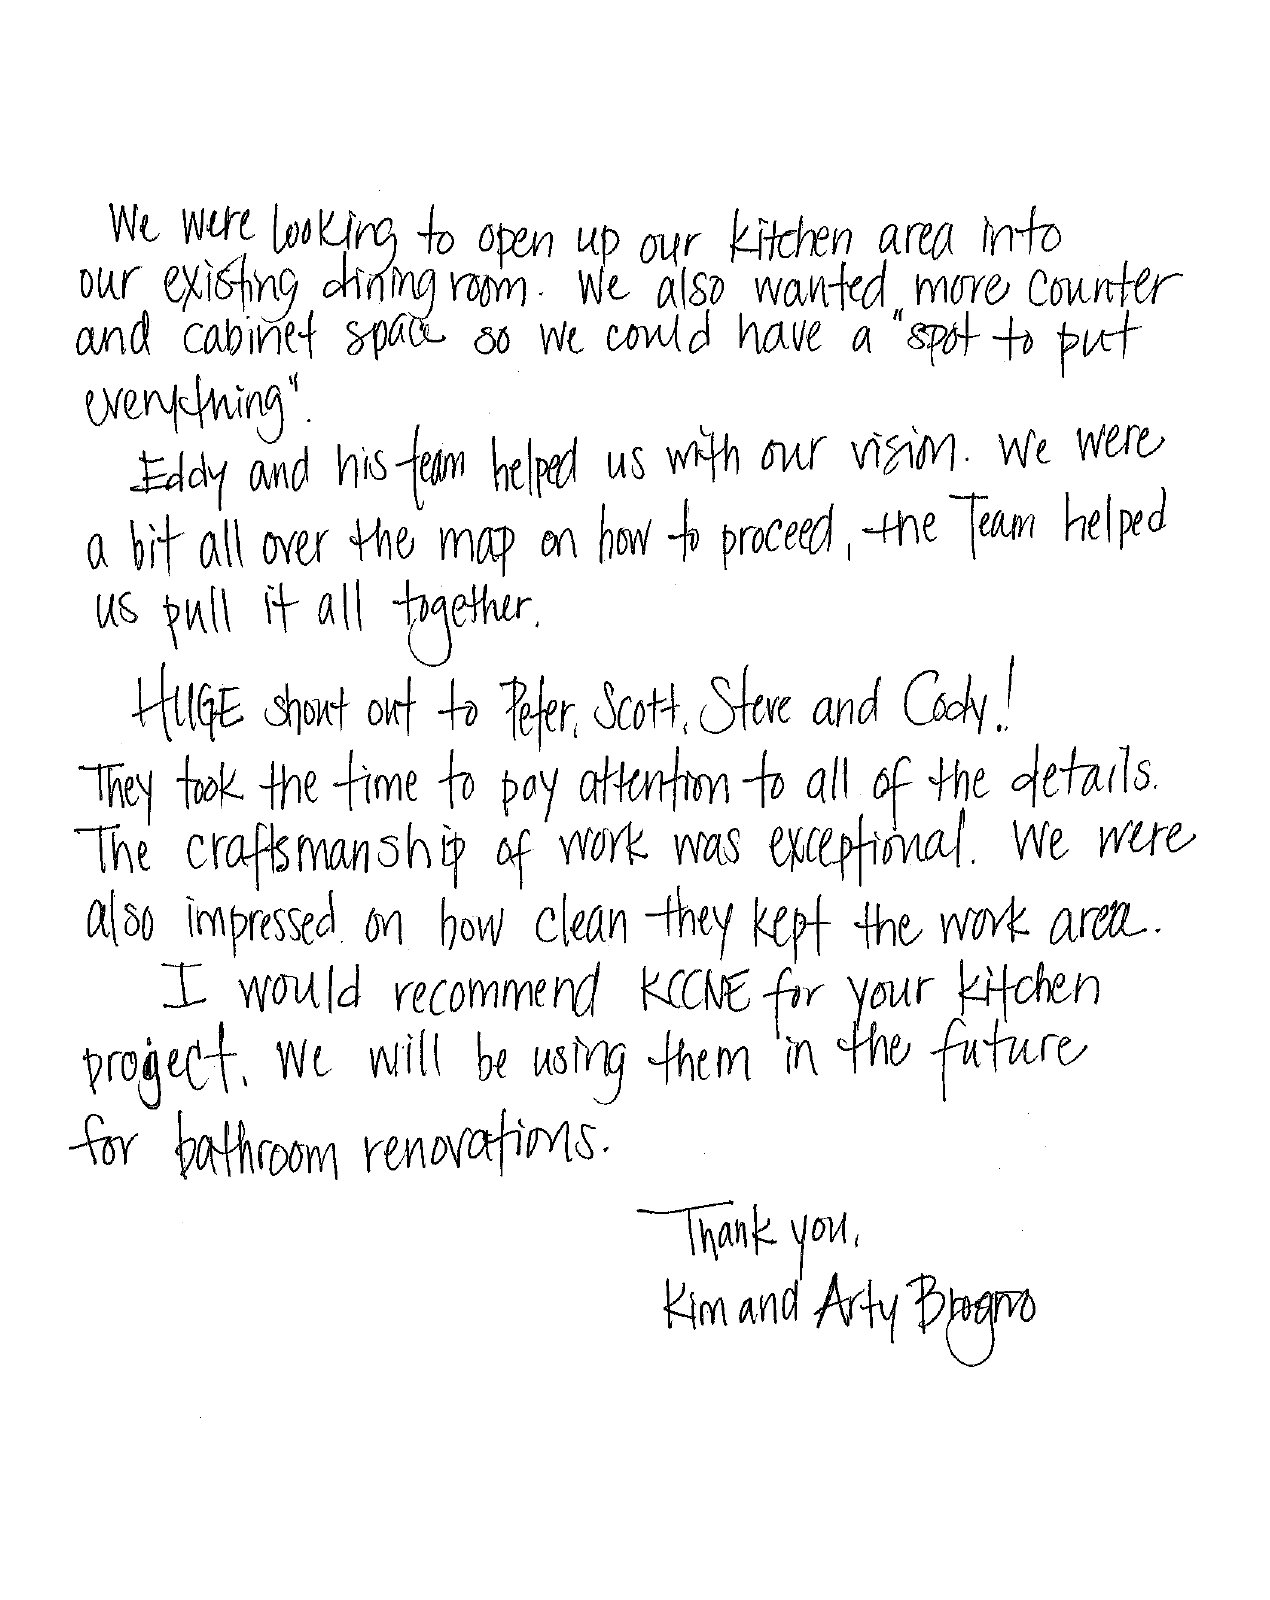 We were looking to open up our kitchen area into
our existing dining room. We also wanted more counter
and cabinet space so we could have a "spot to put
everything".
Eddy and his team helped us with our vision. We were
a bit all over the map on how to proceed, the Team helped
us pull it all together.
HUGE shout out to Peter, Scott, Steve and Cody!
They took the time to pay attention to all of the details.
The craftsmanship of work was exceptional. We were
also impressed on how clean they kept the work area.
I would recommend KCCNE for your kitchen
project. We will be using them in the future
for bathroom renovations.
Thank you,
Kim and Arty Brogno